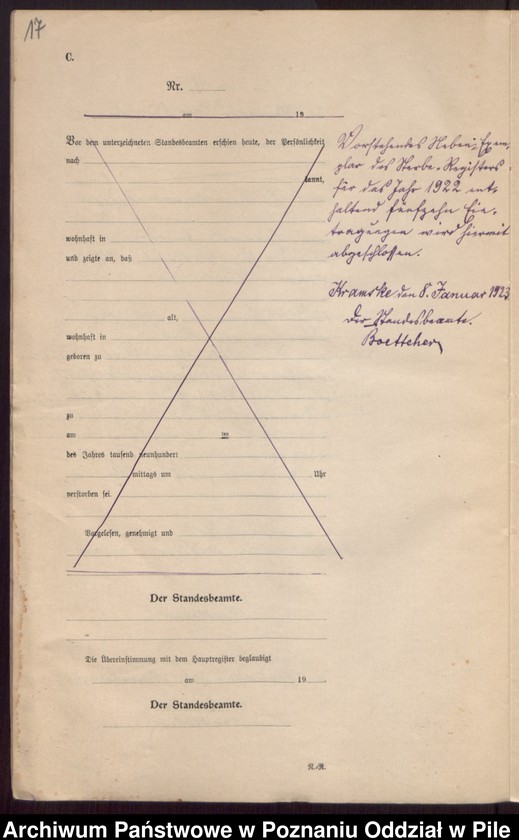 17
C.
Nr.
am 19
Vor dem unterzeichneten Standesbeamten erschien heute, der Persönlichkeit
nach
kannt,
wohnhaft in
und zeigte an, daß
alt,
wohnhaft in
geboren zu
zu
am im
des Jahres tausend neunhundert
mittags um Uhr
verstorben sei.
Vorgelesen, genehmigt und
Der Standesbeamte.
Die Übereinstimmung mit dem Hauptregister beglaubigt
am 19
Der Standesbeamte.
N.-R.
Vorstehendes Neben-Exem-
plar des Sterbe-Registers
für das Jahr 1922 ent-
haltend fünfzehn Ein-
tragungen wird hiermit
abgeschlossen.
Kramske den 8. Januar 1923
Der Standesbeamte.
Boettcher
Archiwum Państwowe w Poznaniu Oddział w Pile